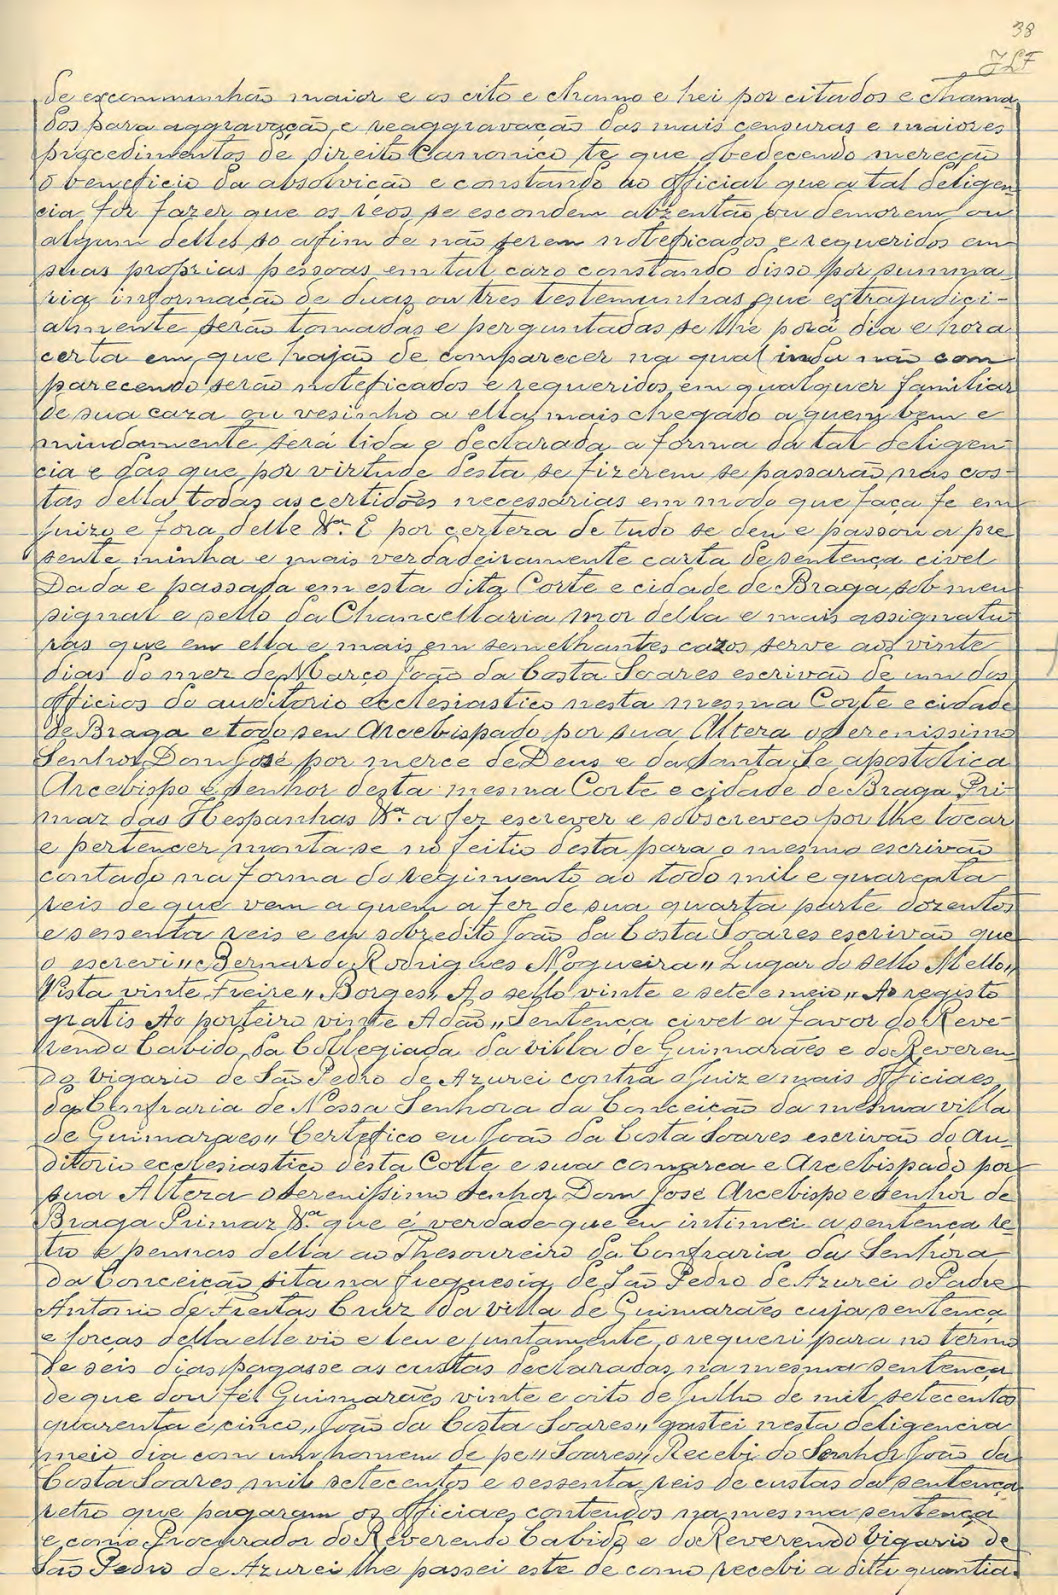 38
JLF
de excommunhão maior e os cito e chamo e hei por citados e chama
dos para aggravação e reaggravação das mais censuras e maiores
procedimentos de direito Canonico te que obedecendo mereção
o beneficio da absolvicão e constando ao official que a tal deligen
cia for fazer que os réos se escondem abzentão ou demorem ou
algum delles so afim de não serem noteficados e requeridos em
suas proprias pessoas em tal cazo constando disso por summa
ria informação de duas ou tres testemunhas que extrajudici-
almente serão tomadas e perguntadas se lhe porá dia e hora
certa em que hajão de comparecer na qual inda não com
parecendo serão noteficados e requeridos em qualquer familiar
de sua caza ou vesinho a ella mais chegado a quem bem e
miudamente será lida e declarada a forma da tal deligen
cia e das que por virtude desta se fizerem se passarão nas cos-
tas della todas as certidões necessarias em modo que faça fe em
Juizo e fora delle &ª. E por certeza de tudo se deu e passou a pre
sente minha e mais verdadeiramente carta de sentença civel
Dada e passada em esta dita Corte e cidade de Braga sob meu
signal e sello da Chancellaria mor della e mais assignatu
ras que em ella e mais em semelhantes cazos serve aos vinte
dias do mez de Março João da Costa Soares escrivão de um dos
officios do auditorio ecclesiastico nesta mesma Corte e cidade
de Braga e todo seu Arcebispado por sua Alteza o serenissimo
Senhor Dom José por merce de Deus e da Santa Se apostolica
Arcebispo e Senhor desta mesma Corte e cidade de Braga Pri-
maz das Hespanhas &ª. a fez escrever e sobscreveo por lhe tocar
e pertencer monta-se no feitio desta para o mesmo escrivão
contado na forma do regimento ao todo mil e quarenta
reis de que vem a quem a fez de sua quarta parte dozentos
e sessenta reis e eu sobredito João da Costa Soares escrivão que
o escrevi" Bernardo Rodrigues Nogueira" Lugar do sello Mello"
Vista vinte Freire" Borges" Ao sello vinte e sete e meio" Ao registo
gratis Ao porteiro vinte Adão" Sentença civel a favor do Reve-
rendo Cabido da Collegiada da villa de Guimarães e do Reveren
do Vigario de São Pedro de Azurei contra o Juiz e mais officiaes
da Confraria de Nossa Senhora da Conceição da mesma villa
de Guimaraes" Certefico eu João da Costa Soares escrivão do Au-
ditorio ecclesiastico desta Corte e sua comarca e Arcebispado por
sua Alteza o serenissimo Senhor Dom José Arcebispo e Senhor de
Braga Primaz &ª que é verdade que eu intimei a sentença re-
tro e pennas della ao Thesoureiro da Confraria da Senhora
da Conceição sita na freguesia de São Pedro de Azurei o Padre
Antonio de Freitas Cruz da villa de Guimarães cuja sentença
e forças della elle vio e leu e juntamente o requeri para no termo
de seis dias pagasse as custas declaradas na mesma sentença
de que dou fé Guimarães vinte e oito de Julho de mil setecentos
quarenta e cinco" João da Costa Soares" gastei nesta deligencia
meio dia com um homem de pe" Soares" Recebi do Senhor João da
Costa Soares mil setecentos e sessenta reis de custas da sentença
retro que pagaram os officiaes contendos na mesma sentença
e como Procurador do Reverendo Cabido e do Reverendo Vigario de
São Pedro de Azurei lhe passei este de como recebi a dita quantia